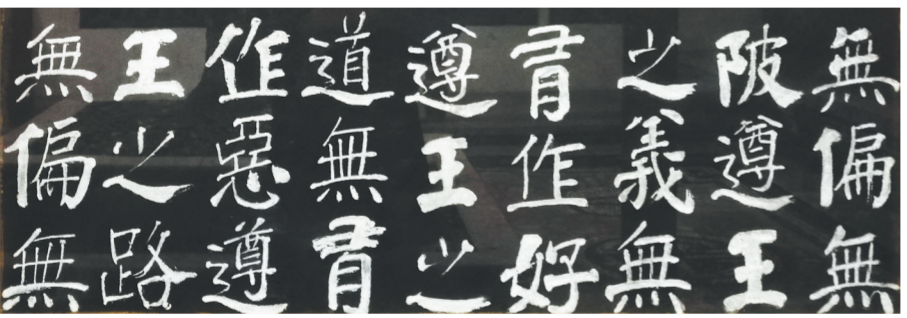 無偏無
陂遵王
之義無
有作好
遵王之
道無有
作惡遵
王之路
無偏無